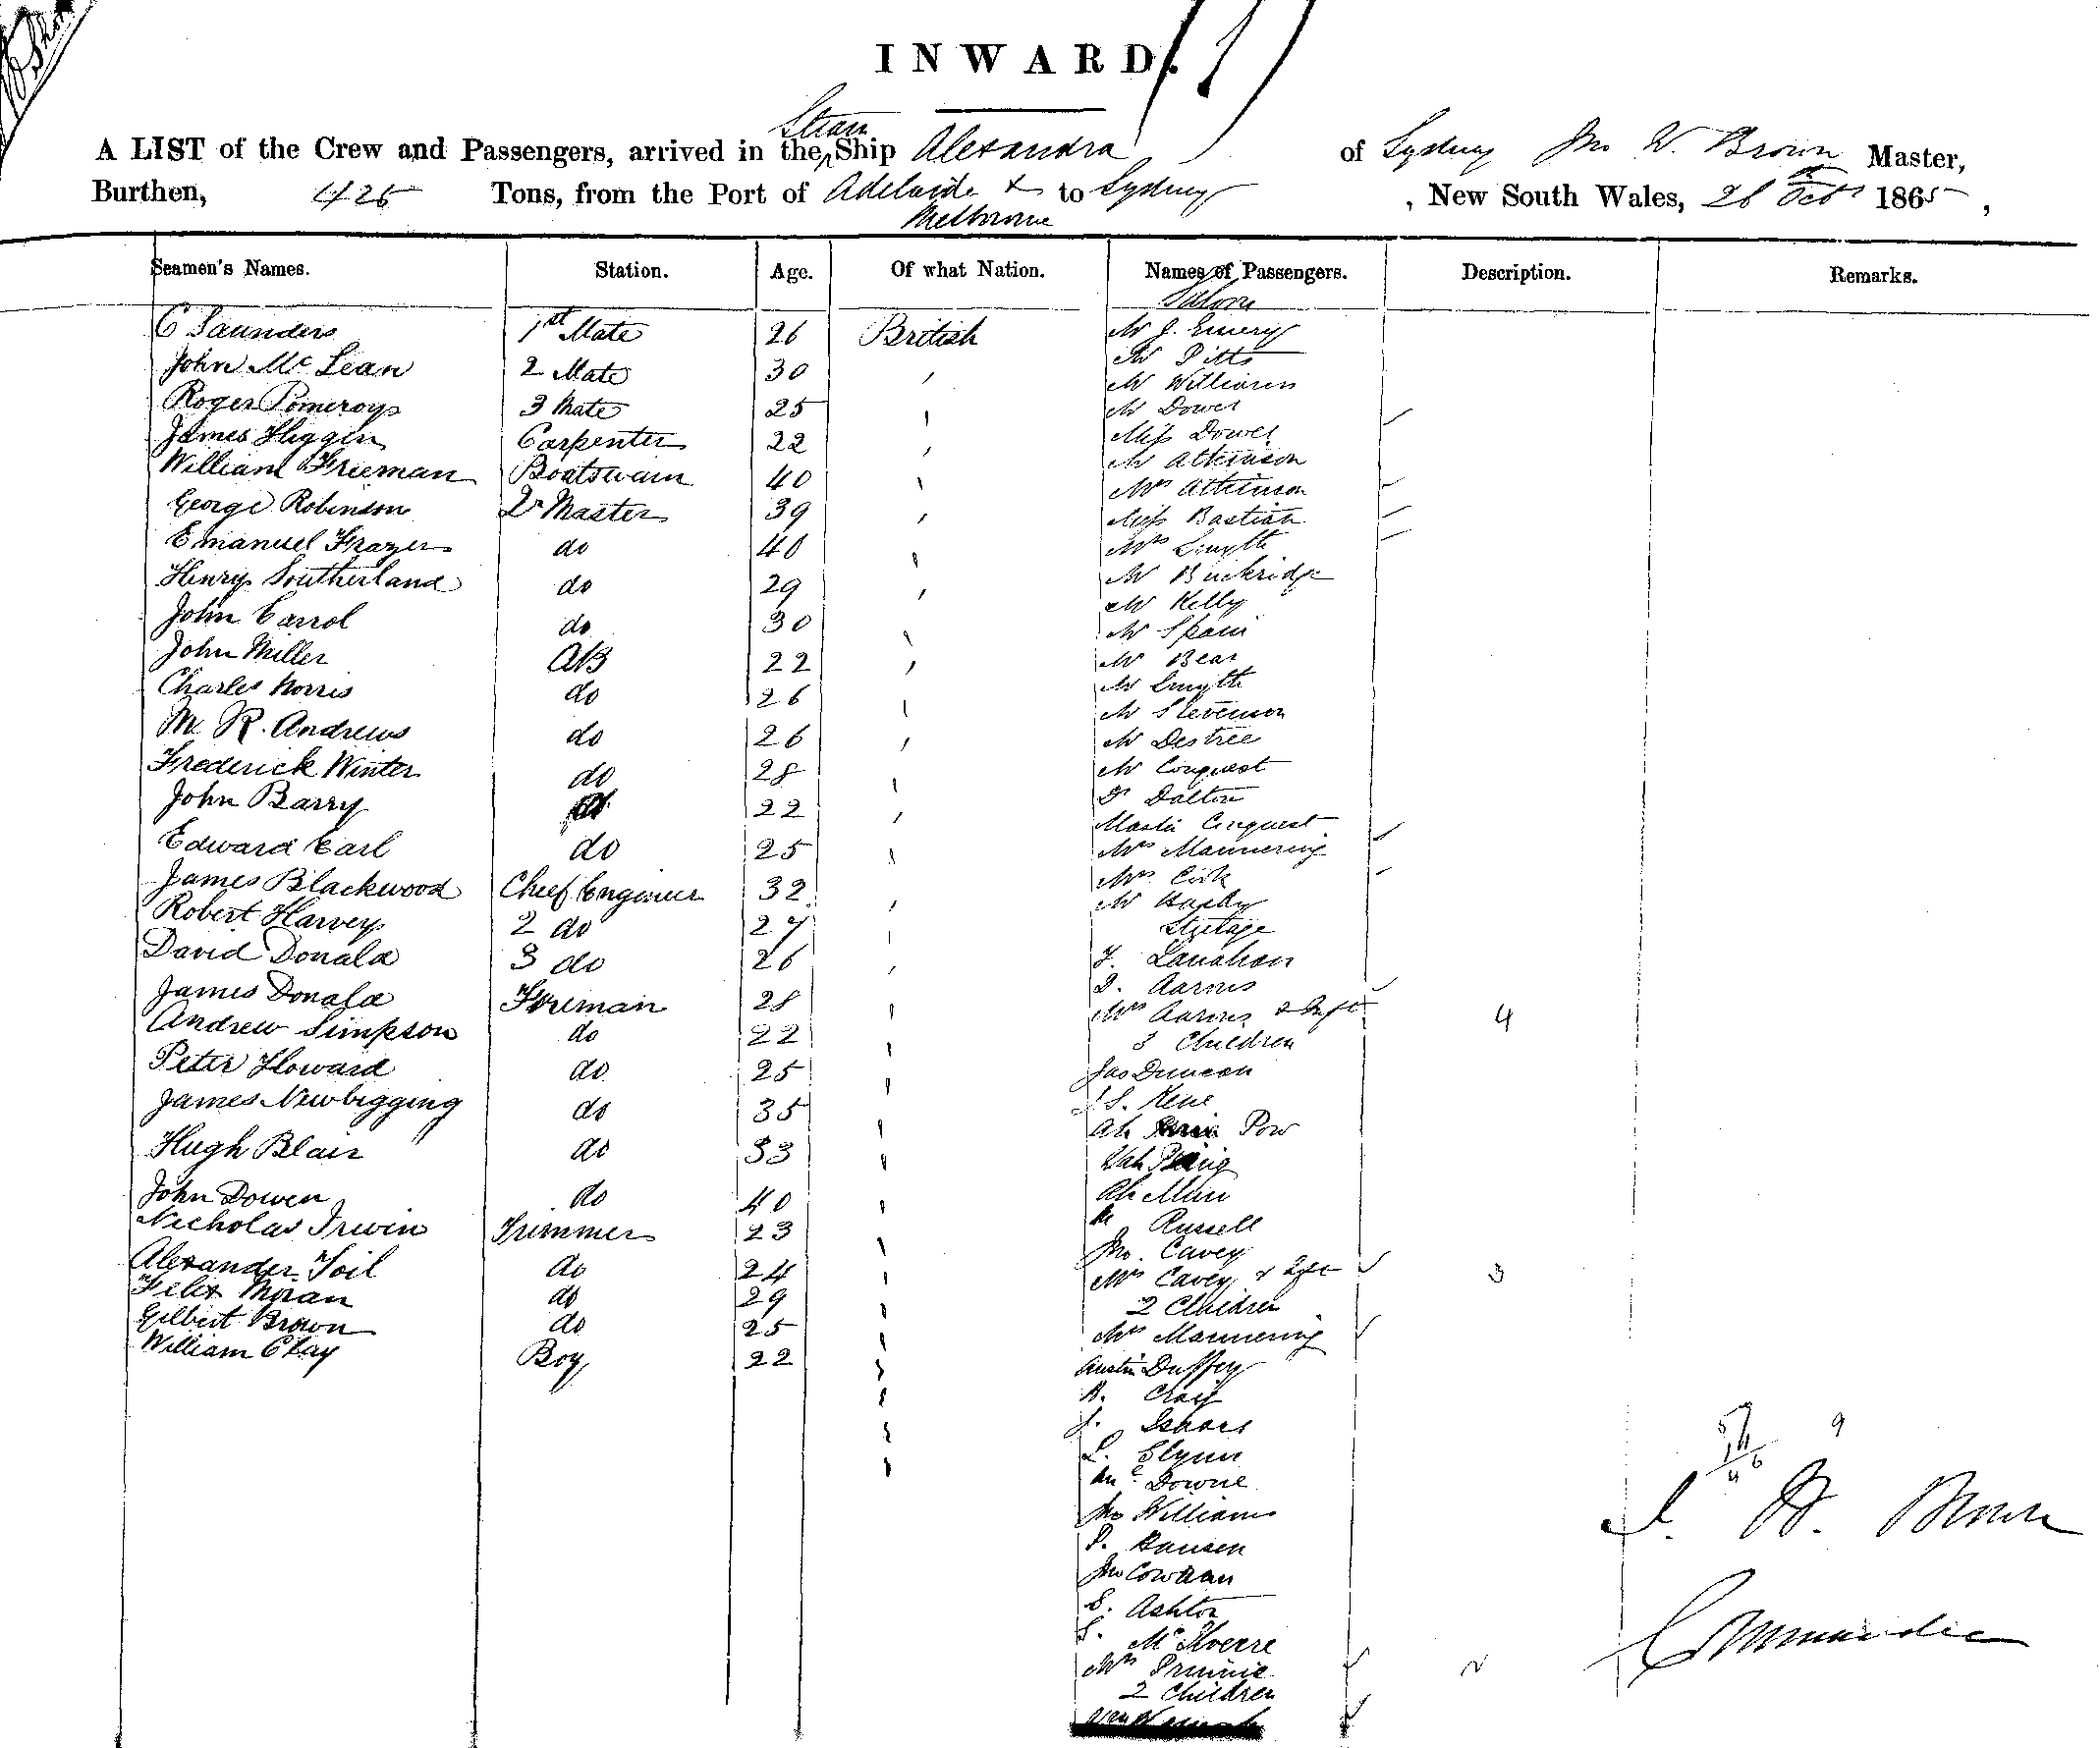 INWARD.
A LIST of the Crew and Passengers, arrived in the Steam Ship Alexandra of Sydney Jno W. Brown Master,
Burthen, 425 Tons, from the Port of Adelaide & Melbourne to Sydney, New South Wales, 26 Octr 1865,
Seamen's Names. Station. Age. Of what Nation. Names of Passengers. Description. Remarks.
C Saunders 1st Mate 26 British
John Mc Lean 2 Mate 30
Roger Pomeroy 3 Mate 25
James Higgin Carpenter 22
William Frieman Boatswain 40
George Robinson Qr Master 39
Emanuel Frazer do 40
Henry Southerland do 29
John Carrol do 30
John Miller AB 22
Charles Norris do 26
M R. Andrews do 26
Frederick Winter do 28
John Barry 22
Edward Earl do 25
James Blackwood Chief Engineer 32
Robert Harvey 2 do 27
David Donald 3 do 26
James Donald Foreman 28
Andrew Simpson do 22
Peter Howard do 25
James Newbigging do 35
Hugh Blair do 33
John Dowen do 40
Nicholas Irwin Trimmer 23
Alexander Toil do 24
Felix Moran do 29
Gilbert Brown do 25
William Clay Boy 22
Saloon
Mr J. Emery
Mr Pitts
Mr Williams
Mr Dowel
Miss Dowel
Mr Atkinson
Mrs Atkinson
Miss Bastian
Mrs Smyth
Mr Buckridge
Mr Kelly
Mr Spain
Mr Bear
Mr Smyth
Mr Stevenson
Mr Destree
Mr Conquest
Dr Dalton
Master Conquest
Mrs Mannering
Mrs Cook
Mr Haxby
Steerage
F. Lanahan
D. Aarons
Mrs Aarons & Inft 4
3 Children
Jas Duncan
S. Kene
Ah Pow
Ah Man
Russell
Jno. Cavey
Mrs Cavey & Inft 3
2 Children
Mrs Mannering
Austin Duffey
B. Craig
J. Isaacs
L. Glynn
Downe
Jno Williams
P. Hansen
Jno Cowan
S. Ashton
S.
Mrs Primie 2
2 Children
J. W. Brown
Commander